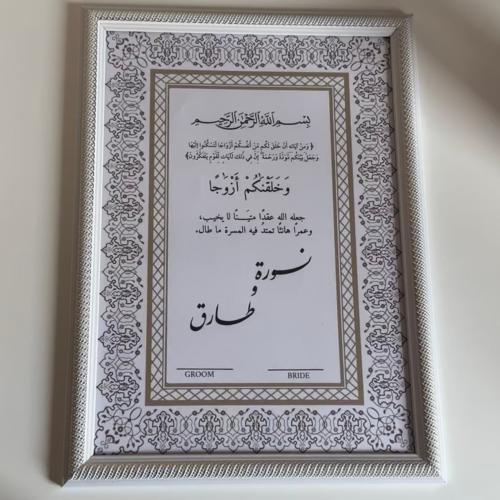 بسم الله الرحمن الرحيم
﴿ وَمِنْ آيَاتِهِ أَنْ خَلَقَ لَكُم مِّنْ أَنفُسِكُمْ أَزْوَاجًا لِّتَسْكُنُوا إِلَيْهَا
وَجَعَلَ بَيْنَكُم مَّوَدَّةً وَرَحْمَةً ۚ إِنَّ فِي ذَٰلِكَ لَآيَاتٍ لِّقَوْمٍ يَتَفَكَّرُونَ﴾
وَخَلَقْنَٰكُمْ أَزْوَٰجًا
جعله الله عقدًا متينًا لا يخيب،
وعمرًا هانئًا تمتدّ فيه المسرة ما طال.
نورة
و
طارق
GROOM BRIDE